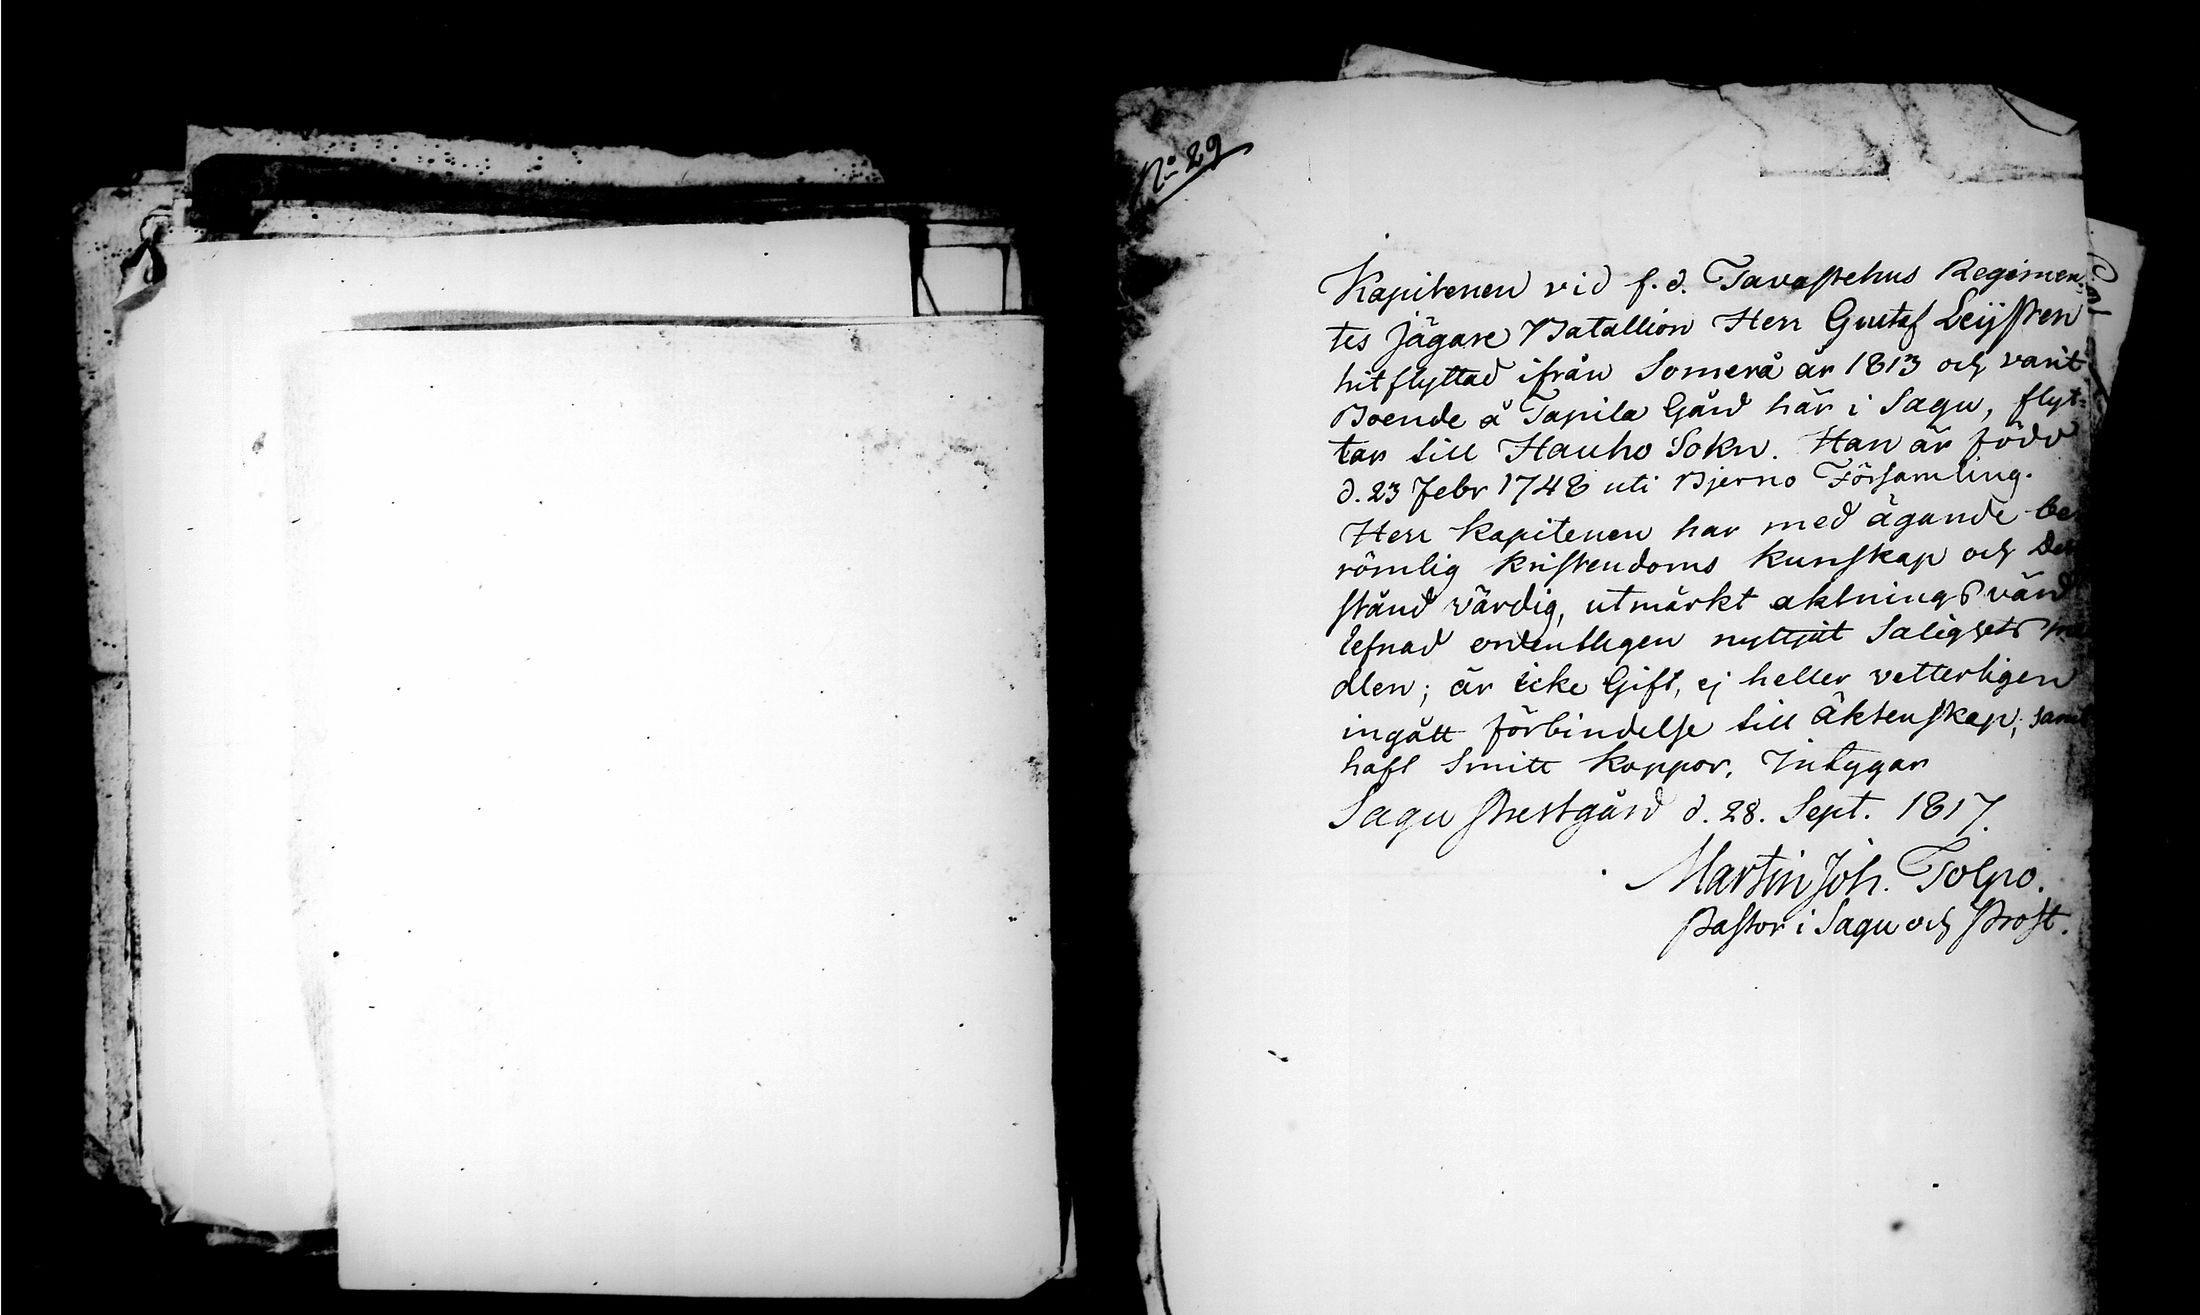 No 29
Kapitenen vid f. d. Tavastehus Regimen-
tes Jägare Batallion Herr Gustaf Leijsten
hitflyttad ifrån Somerå år 1813 och varit
Boende å Tapila Gård här i Sagu, flyt-
tar till Hauho Sokn. Han är född
d. 23 Febr 1748 uti Bjerno Församling.
Herr Kapitenen har med ägande be
römlig Kristendoms Kunskap och
stånd värdig, utmärkt aktningsvärd
lefnad ordentligen nyttjat Salighets
dlen; är icke Gift, ej heller vetterligen
ingått förbindelse till äktenskap; samt
haft Smitt Koppor, Intygar
Sagu Prestgård d. 28. Sept. 1817.
Martin Joh. Tolpo.
Pastor i Sagu och Prost.